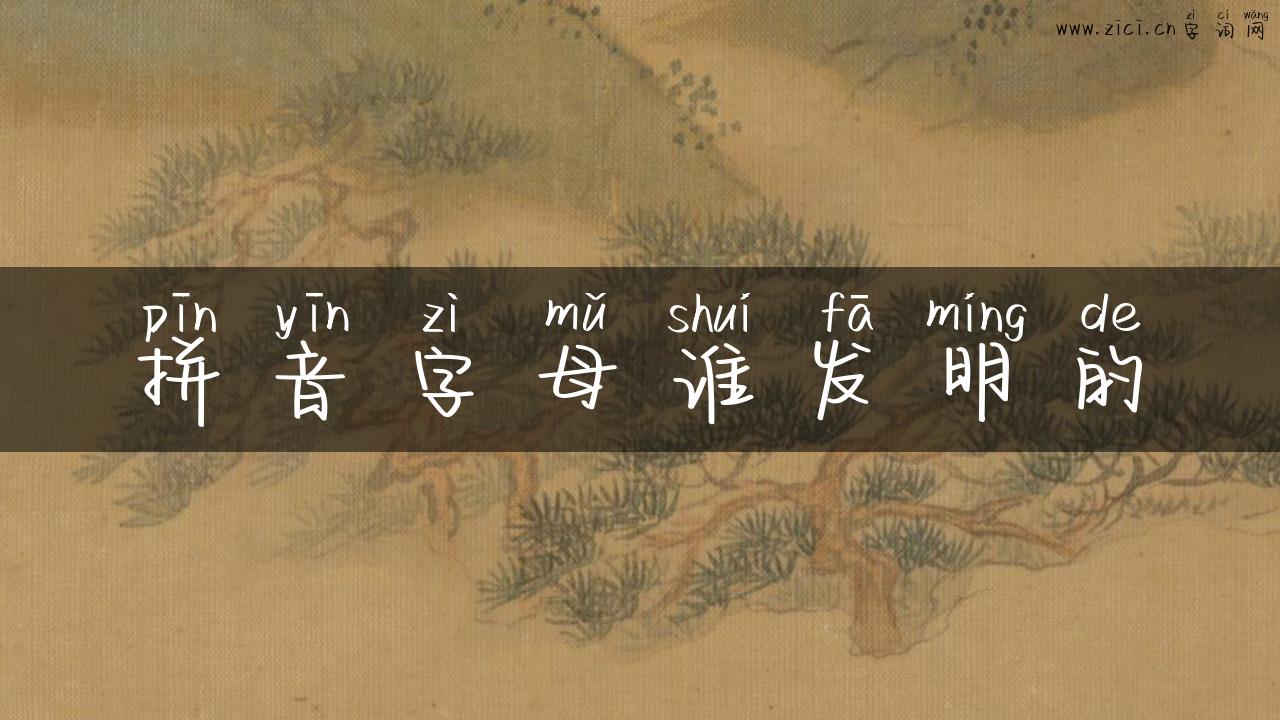 zì cí wǎng
www.zici.cn 字词网
pīn yīn zì mǔ shuí fā míng de
拼音字母谁发明的